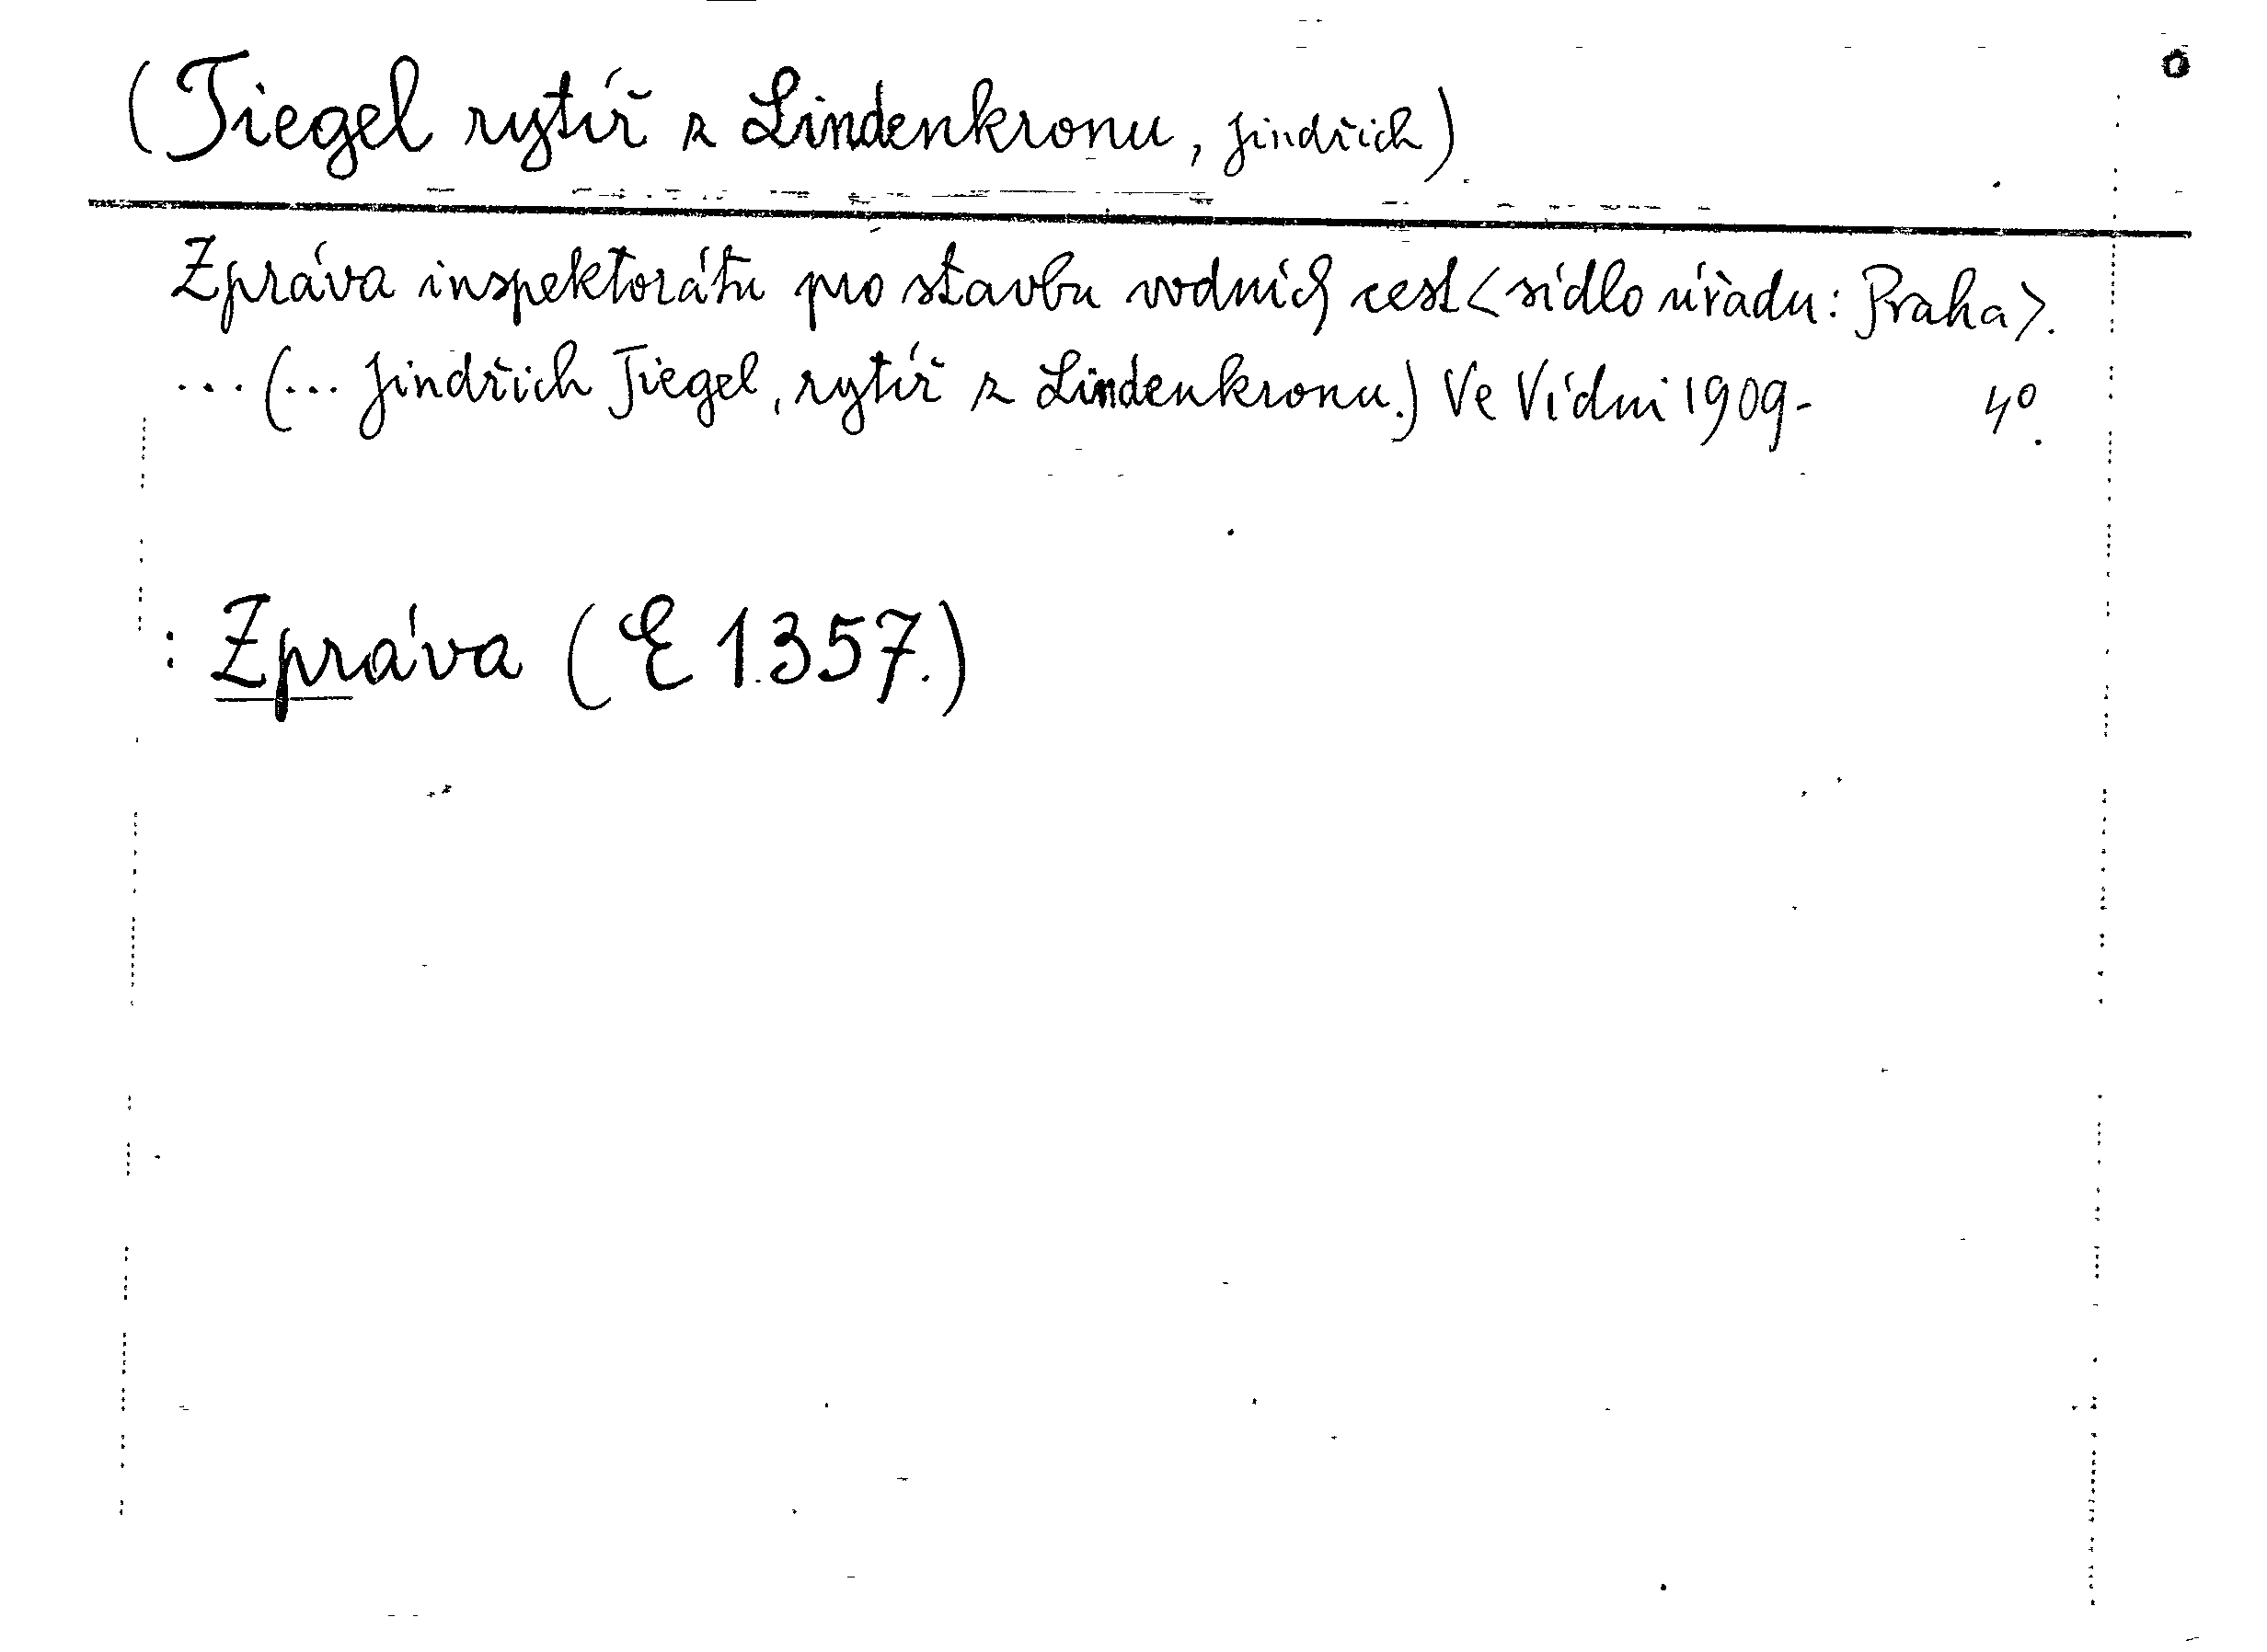 (Tiegel rytíř z Lindenkronu, Jindřich)
Zpráva inspektorátu pro stavbu vodních cest <sídlo úřadu: Praha>.
...(... Jindřich Tiegel, rytíř z Lindenkronu.) Ve Vídni 1909- 4°.
: Zpráva (E 1.357.)